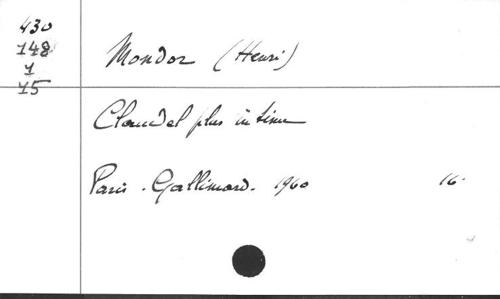 430
148
1
15
Mondor (Henri)
Claudel plus intime
Paris. Gallimard. 1960 16